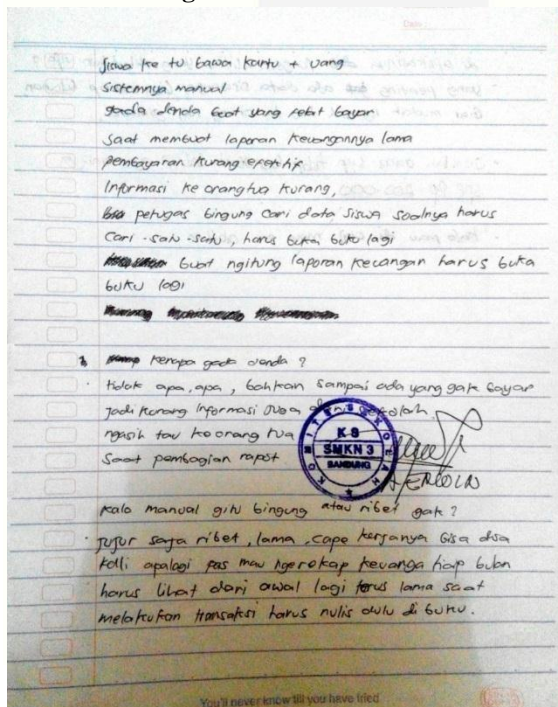 siswa ke tu bawa kartu + uang
sistemnya manual
gada denda buat yang telat bayar
saat membuat laporan keuangannya lama
pembayaran kurang epektif
Informasi ke orangtua kurang,
petugas bingung cari data siswa soalnya harus
cari -satu-satu, harus buka buku lagi
buat ngitung laporan keuangan harus buka
buku lagi
kenapa gada denda ?
tidak apa, apa, bahkan sampai ada yang gak bayar
jadi kurang informasi juga sekolah
ngasih tau ke orang tua
saat pembagian rapot
KOMITE SEKOLAH
KS
SMKN 3
BANDUNG
kalo manual gitu bingung atau ribet gak ?
jujur saja ribet, lama, cape kerjanya bisa dua
kali apalagi pas mau ngerekap keuanga tiap bulan
harus lihat dari awal lagi terus lama saat
melakukan transaksi harus nulis dulu di buku.
You'll never know till you have tried